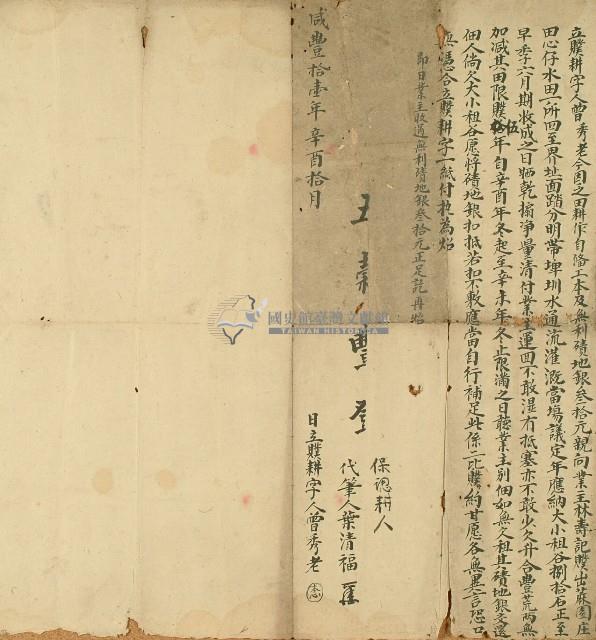 立贌耕字人曾秀老今因乏田耕作自偹工本及無利磧地銀叁拾元親向業主林壽記贌出蔴園庄
田心仔水田一所四至界址面踏分明帶埤圳水通流灌溉當塲議定年應納大小租谷捌拾石正至
早季六月期收成之日晒乾搧净量清付業主運回不敢湿有抵塞亦不敢少欠升合豐荒兩無
加減其田限贌伍年自辛酉年冬起至辛未年冬止限滿之日聴業主别佃如無欠租其磧地銀交還
佃人倘欠大小租谷愿将磧地銀扣抵若扣不敷應當自行補足此係二比贌約甘愿各無異言恐口
無憑合立贌耕字一紙付执為炤
即日業主收過無利磧地銀叁拾元正足訖再炤
五穀豐登
保認耕人
代筆人葉清福
日立贌耕字人曾秀老
咸豐拾壹年辛酉拾月
國史館臺灣文獻館
TAIWAN HISTORICA